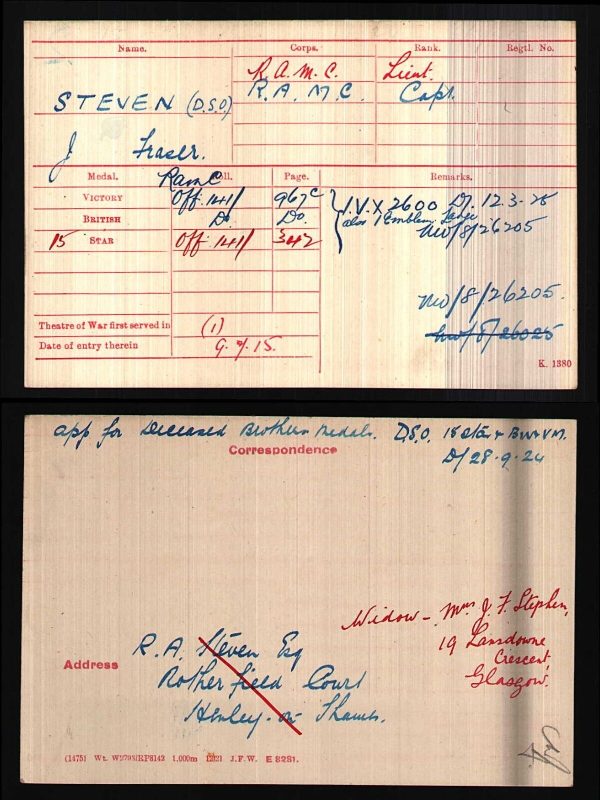 Name. Corps. Rank. Regtl. No.
R.A.M.C. Lieut.
STEVEN (D.S.O) R.A.M.C. Capt.
J Fraser.
Medal. Roll. Page. Remarks.
RAMC
VICTORY Off. 141/ 967c I.V.X 2600 D/. 12.3.25
BRITISH Do Do. also 1 Emblem large
NW/8/26205
15 STAR Off. 141/ 342
NW/8/26205.
NW/8/26025
Theatre of War first served in (1)
Date of entry therein 9.7.15.
K. 1380
app for Deceased Brothers medals. D.S.O. 15 Star & BW & VM.
D/28.9.24
Correspondence
Widow – Mrs J. F. Stephen,
19 Lansdowne
Crescent
Glasgow.
Address
R.A. Steven Esq
Rotherfield Court
Henley-on Thames.
(1475) Wt. W9798/RP8142 1,000m 12/21 J.F.W. E 8281.